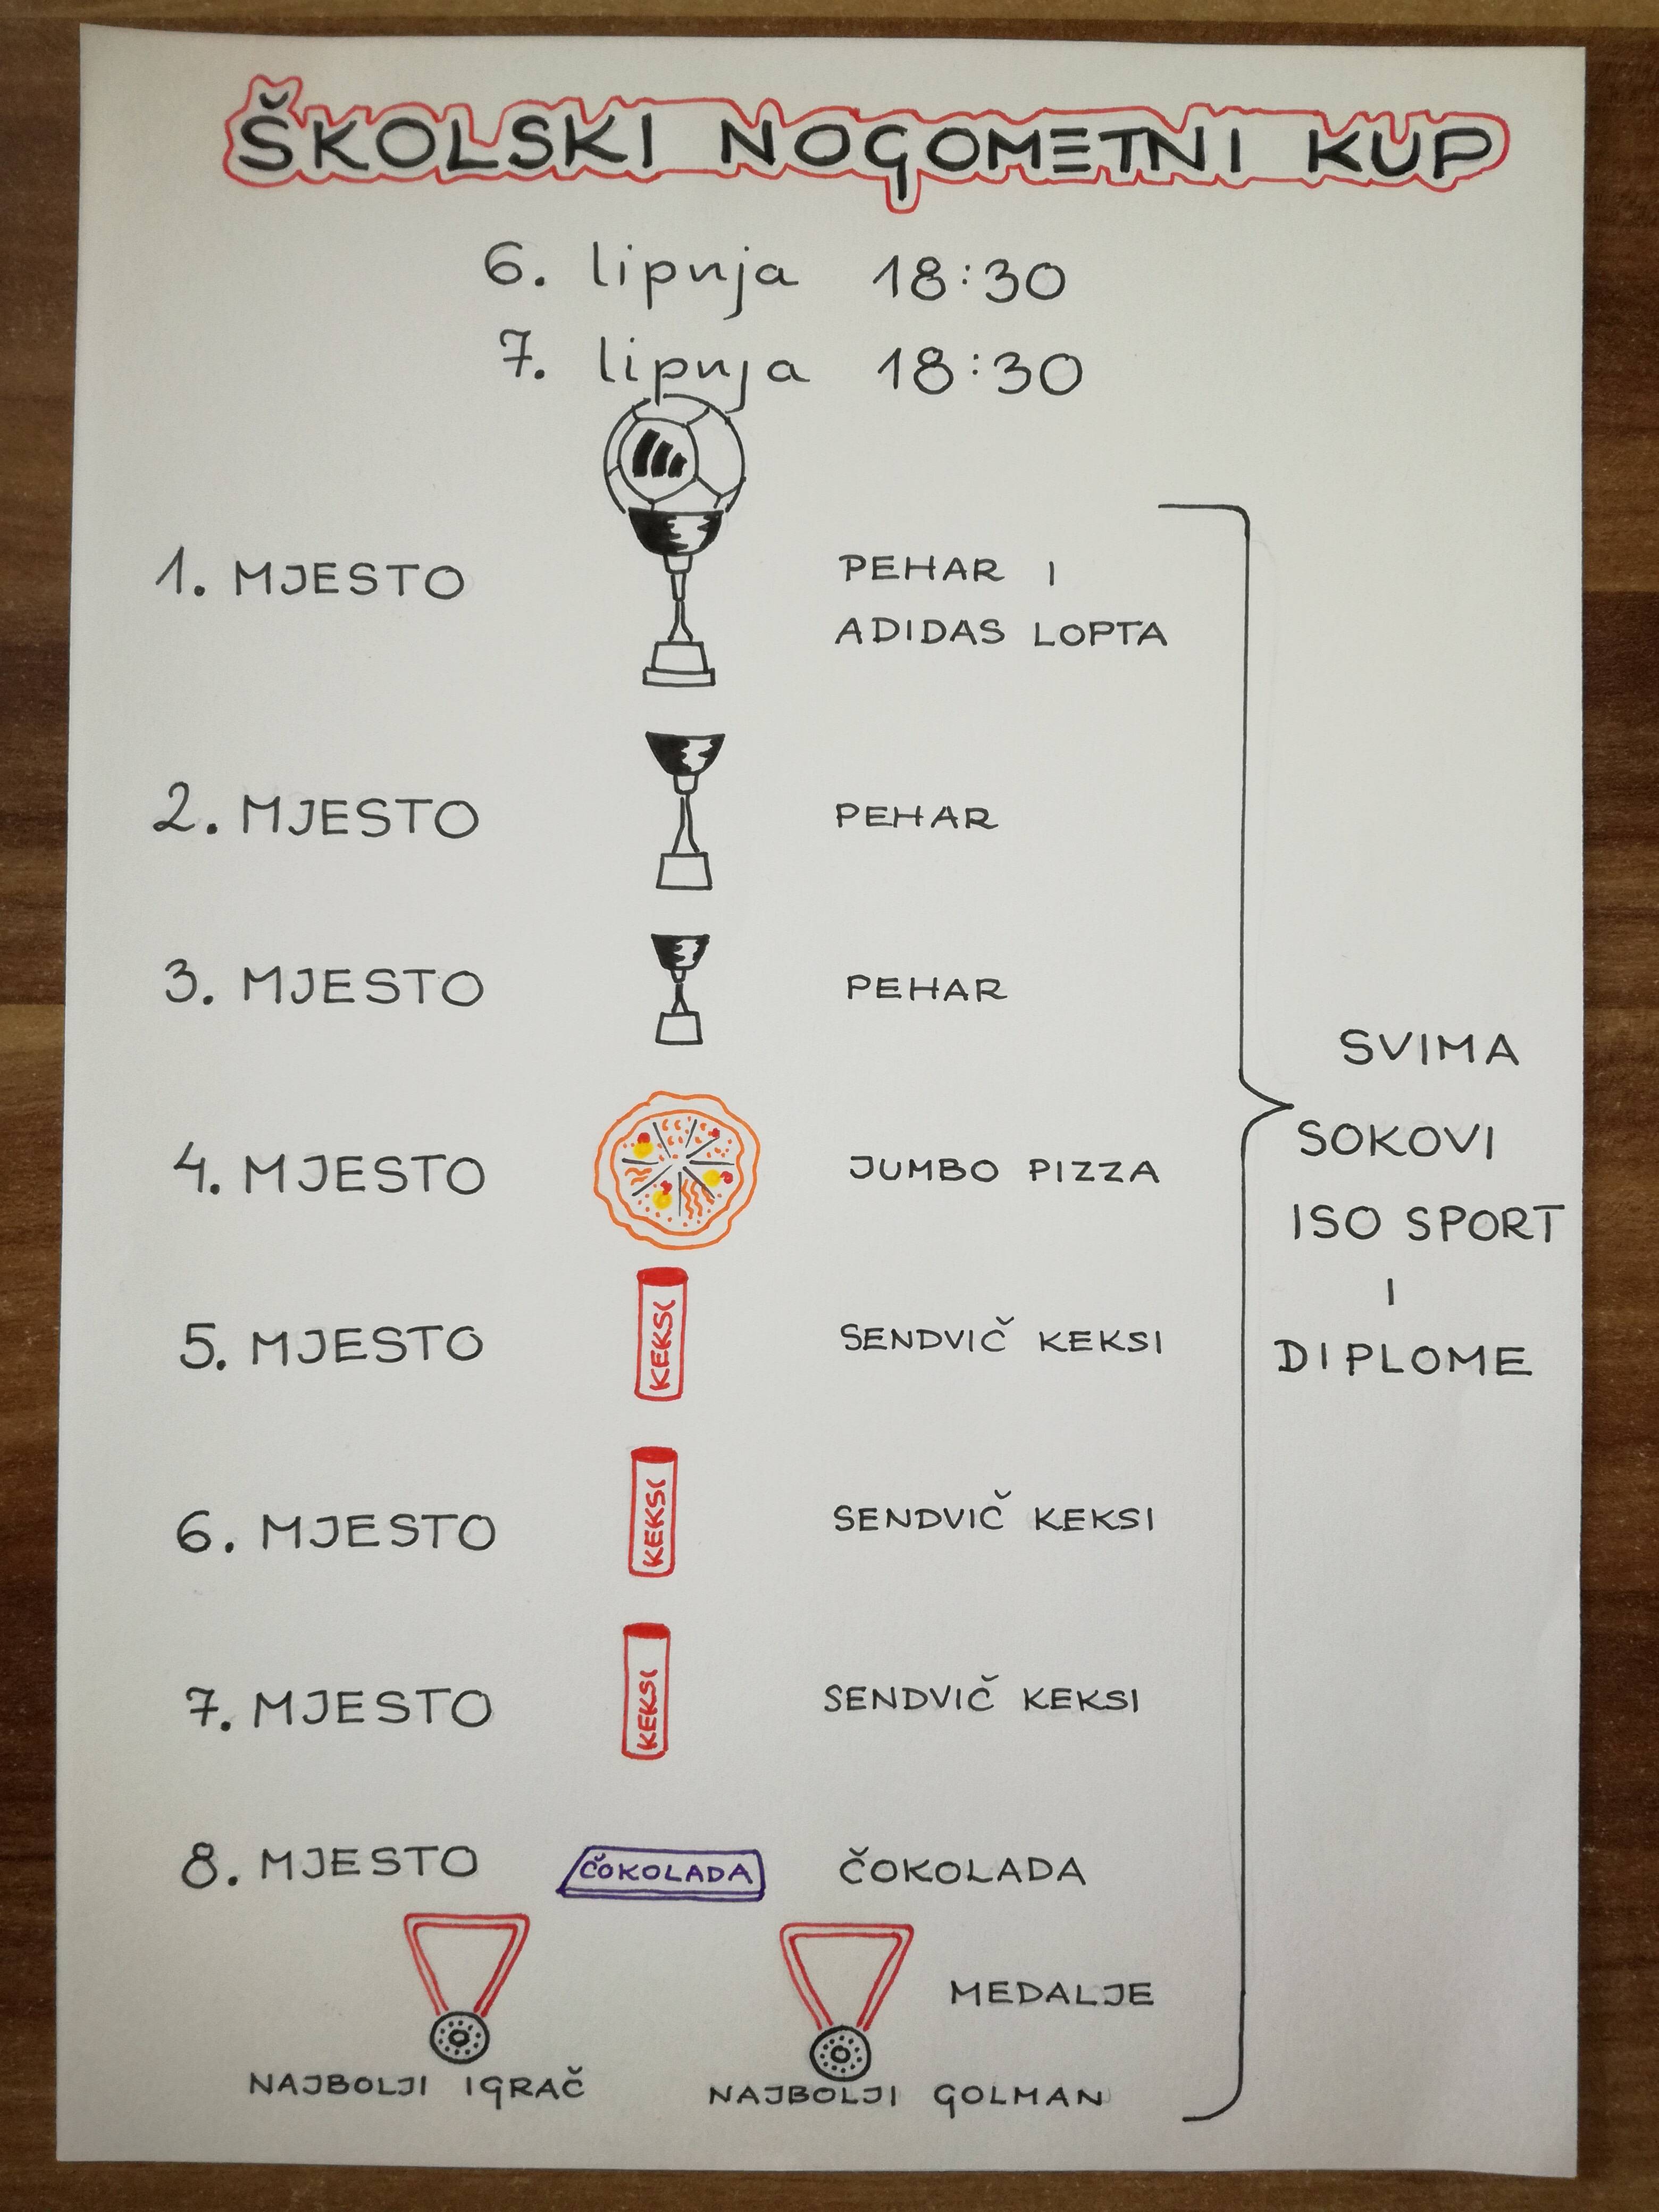 ŠKOLSKI NOGOMETNI KUP
6. lipnja 18:30
7. lipnja 18:30
1. MJESTO
PEHAR I
ADIDAS LOPTA
2. MJESTO PEHAR
3. MJESTO PEHAR
4. MJESTO JUMBO PIZZA
5. MJESTO KEKSI SENDVIČ KEKSI
6. MJESTO KEKSI SENDVIČ KEKSI
7. MJESTO KEKSI SENDVIČ KEKSI
8. MJESTO ČOKOLADA ČOKOLADA
MEDALJE
NAJBOLJI IGRAČ NAJBOLJI GOLMAN
SVIMA
SOKOVI
ISO SPORT
I
DIPLOME